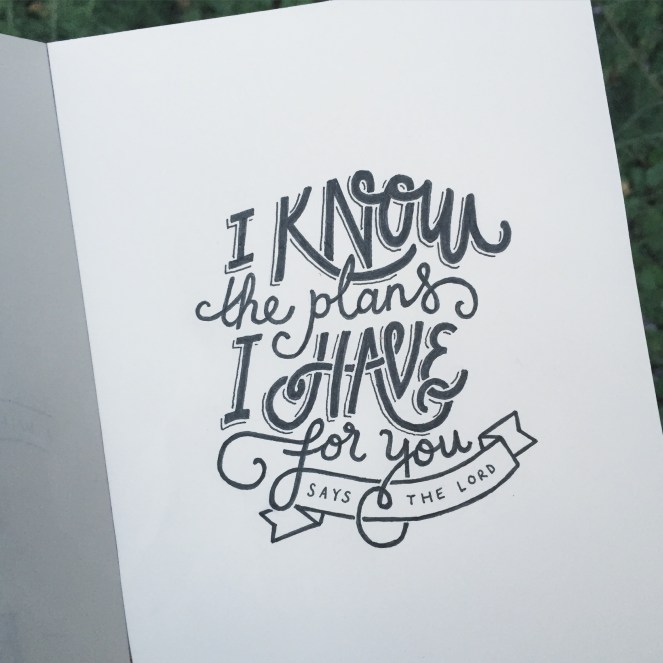 I KNOW
the plans
I HAVE
for you
SAYS THE LORD